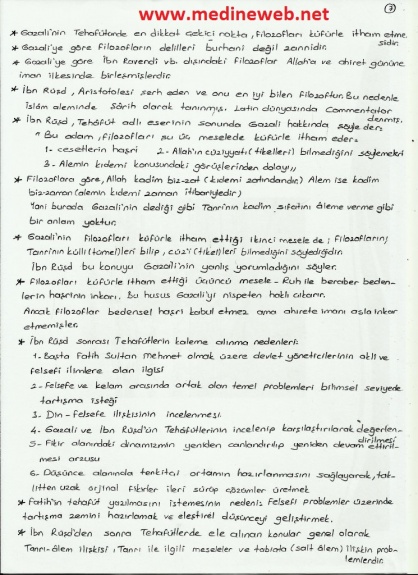 www.medineweb.net
7
* Gazali'nin Tehafütünde en dikkat çekici nokta, filozofları küfürle itham etme
sidir.
* Gazali'ye göre filozofların delilleri burhani değil zannidir.
* Gazali'ye göre İbn Ravendi vb. dışındaki filozoflar Allah'a ve ahiret gününe
iman ilkesinde birleşmişlerdir.
* İbn Rüşd, Aristotolesi şerh eden ve onu en iyi bilen filozoftur. Bu nedenle
İslâm aleminde Şârih olarak tanınmış. Latin dünyasında Commentator
denmiş.
* İbn Rüşd, Tehâfüt adlı eserinin sonunda Gazali hakkında şöyle der:
"Bu adam, filozofları şu üç meselede küfürle itham eder:
1- cesetlerin haşri 2- Allah'ın cüz'iyyatı (tikelleri) bilmediğini söylemeleri
3- Alemin kıdemi konusundaki görüşlerinden dolayı,,
* Filozoflara göre, Allah kadim biz-zat (kıdemi zatındandır.) Alem ise kadim
biz-zaman (alemin kıdemi zaman itibariyledir)
Yani burada Gazali'nin dediği gibi Tanrı'nın kadim sıfatını âleme verme gibi
bir anlam yoktur.
* Gazali'nin filozofları küfürle itham ettiği ikinci mesele de; Filozofların;
Tanrı'nın külli (tümel)leri bilip, cüz'i (tikel)leri bilmediğini söylediğidir
İbn Rüşd bu konuyu Gazali'nin yanlış yorumladığını söyler.
* Filozofları küfürle itham ettiği üçüncü mesele - Ruh ile beraber beden-
lerin haşrinin inkarı. Bu husus Gazali'yi nispeten haklı çıkarır.
Ancak filozoflar bedensel haşri kabul etmez ama ahirete imanı asla inkar
etmemişler.
* İbn Rüşd sonrası Tehafütlerin kaleme alınma nedenleri:
1- Başta Fatih Sultan Mehmet olmak üzere devlet yöneticilerinin akli ve
felsefi ilimlere olan ilgisi
2- Felsefe ve kelam arasında ortak olan temel problemleri bilimsel seviyede
tartışma isteği
3. Din-Felsefe ilişkisinin incelenmesi
4. Gazali ve İbn Rüşd'ün Tehâfütlerinin incelenip karşılaştırılarak değerlen-
dirilmesi
5- Fikir alanındaki dinamizmin yeniden canlandırılıp yeniden devam ettiril-
mesi arzusu
6- Düşünce alanında tenkitçi ortamın hazırlanmasını sağlayarak, tak-
litten uzak orjinal fikirler ileri sürüp çözümler üretmek
* Fatih'in tehafüt yazılmasını istemesinin nedeni: Felsefi problemler üzerinde
tartışma zemini hazırlamak ve eleştirel düşünceyi geliştirmek.
* İbn Rüşd'den sonra Tehafütlerde ele alınan konular genel olarak
Tanrı-âlem ilişkisi, Tanrı ile ilgili meseleler ve tabiata (salt âlem) ilişkin prob-
lemlerdir.